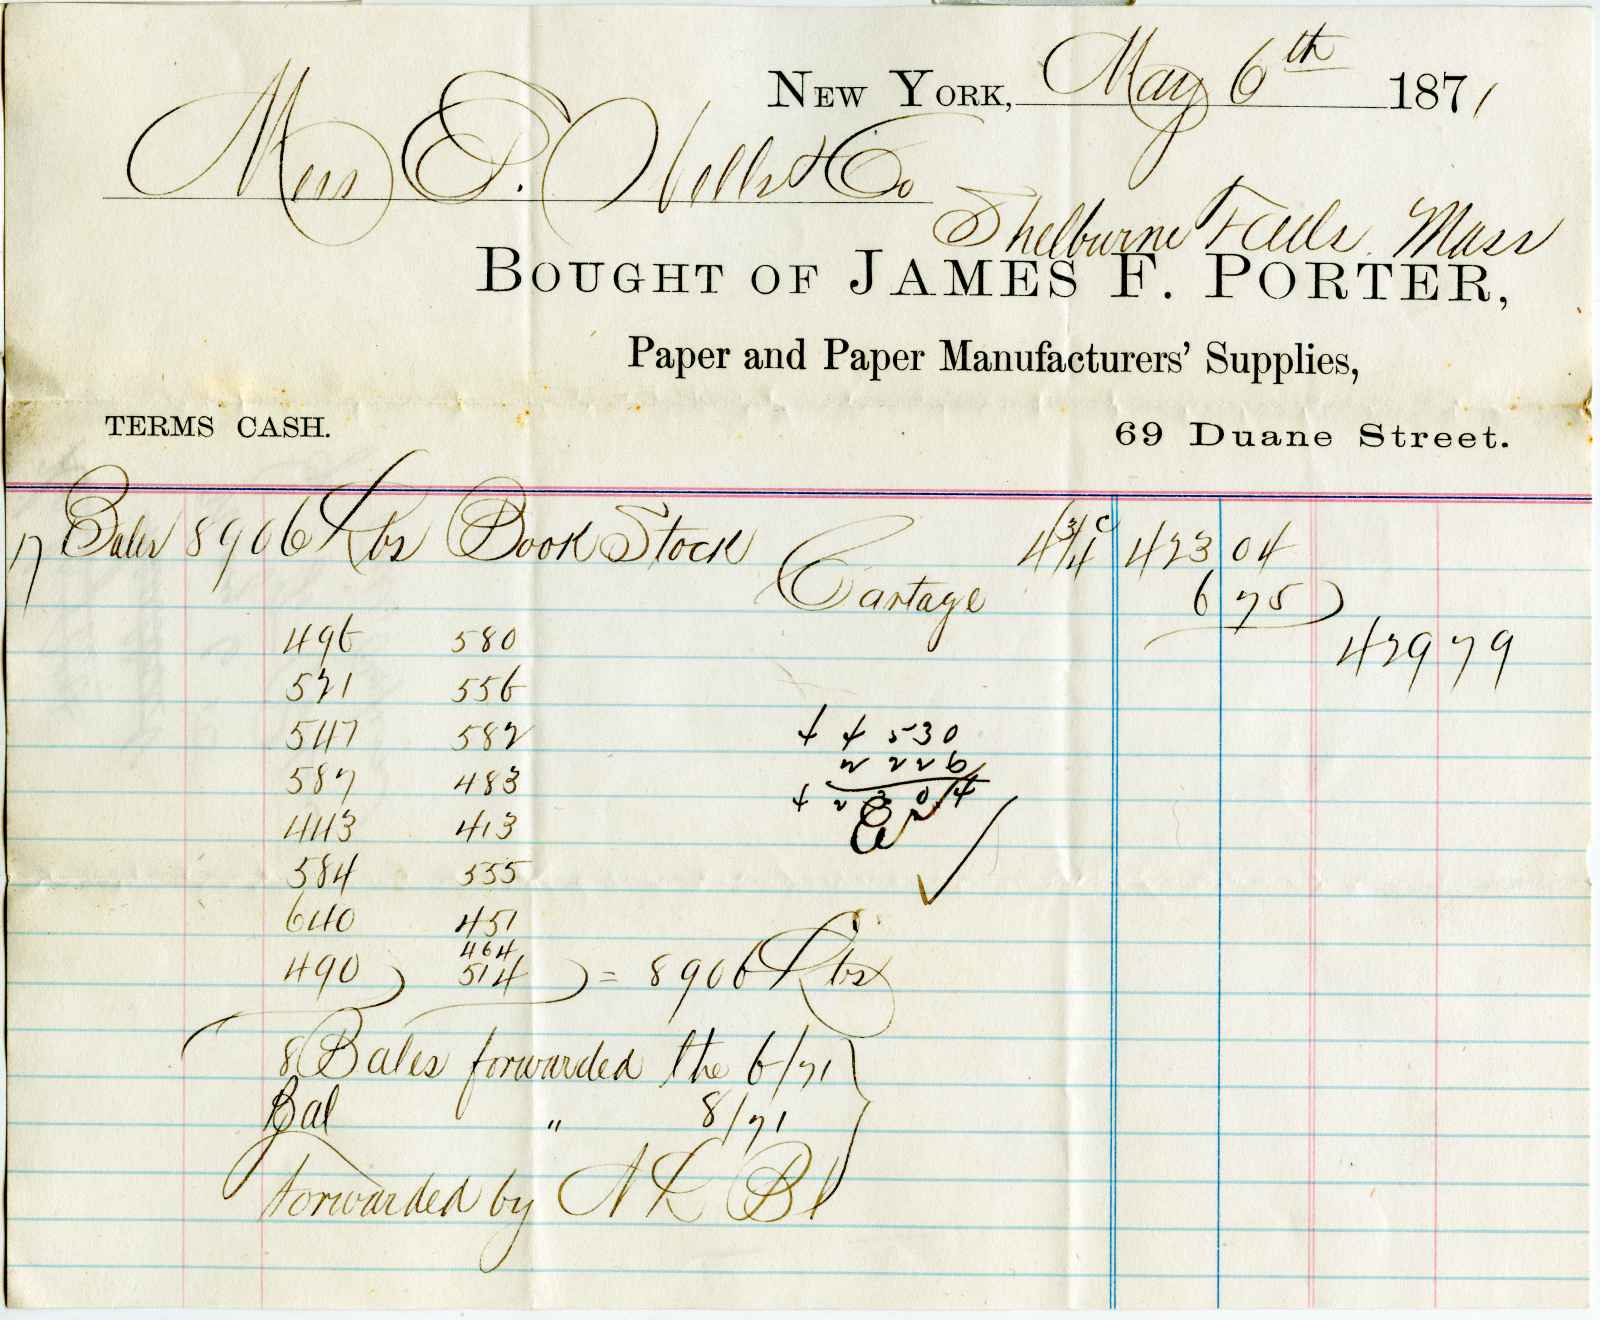 NEW YORK, May 6th 1871
Mess Wells & Co
Shelburne Falls Mass
BOUGHT OF JAMES F. PORTER,
Paper and Paper Manufacturers' Supplies,
TERMS CASH. 69 Duane Street.
17 Bales 8906 Lbs Book Stock 4 3/4 c 423 04
Cartage 6 75
42979
496 580
521 556
547 582
587 483
443 413
584 555
640 451
464
490 514 = 8906 Lbs
44530
2226
42304
8 Bales forwarded the 6/71
Bal " 8/71
forwarded by